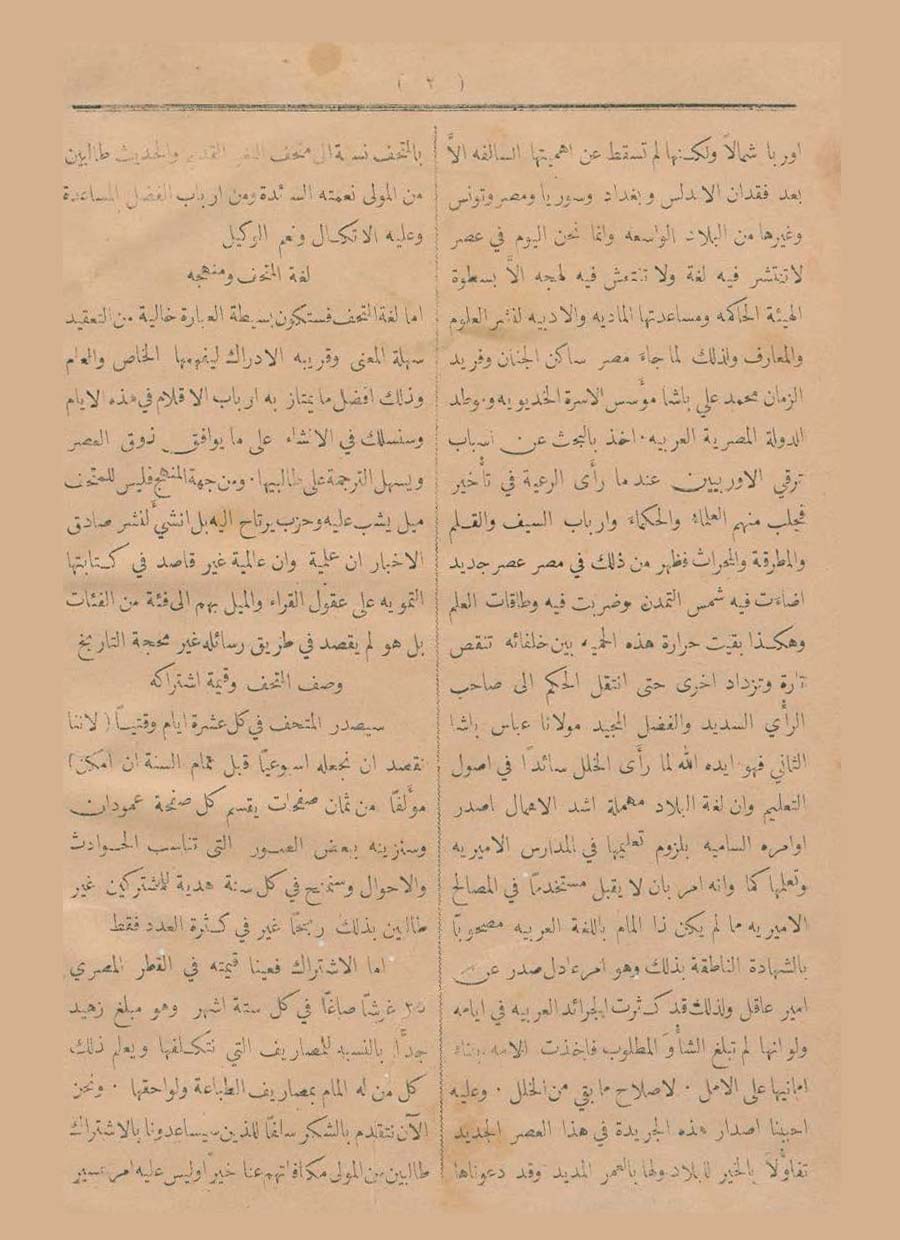 ( ٢ )
اوربا شمالاً ولكنها لم تسقط عن اهميتها السالفه الاَّ
بعد فقدان الاندلس وبغداد وسوريا ومصر وتونس
وغيرها من البلاد الواسعه وانما نحن اليوم في عصر
لا تنتشر فيه لغة ولا تنتعش فيه لهجه الاَّ بسطوة
الهيئة الحاكمه ومساعدتها الماديه والادبيه لنشر العلوم
والمعارف ولذلك لما جاء مصر ساكن الجنان وفريد
الزمان محمد علي باشا مؤسس الاسرة الخديويه وموطد
الدولة المصرية العربيه ٠ اخذ بالبحث عن اسباب
ترقي الاوربيين عندما رأى الرعية في تأخير
فجلب منهم العلماء والحكماء وارباب السيف والقلم
والمطرقة والمحراث فظهر من ذلك في مصر عصر جديد
اضاءت فيه شمس التمدن وضربت فيه وطاقات العلم
وهكذا بقيت حرارة هذه الحميه بين خلفائه تنقص
تارة وتزداد اخرى حتى انتقل الحكم الى صاحب
الرأي السديد والفضل المجيد مولانا عباس باشا
الثاني فهو ايده الله لما رأى الخلل سائداً في اصول
التعليم وان لغة البلاد مهملة اشد الاهمال اصدر
اوامره الساميه بلزوم تعليمها في المدارس الاميريه
وتعلمها كما وانه امر بان لا يقبل مستخدماً في المصالح
الاميريه ما لم يكن ذا المام باللغة العربيه مصحوباً
بالشهادة الناطقة بذلك وهو امر عادل صدر عن
امير عاقل ولذلك قد كثرت الجرائد العربيه في ايامه
ولو انها لم تبلغ الشأو المطلوب فاخذت الامه ببناء
امانيها على الامل ٠ لاصلاح ما بقي من الخلل ٠ وعليه
احببنا اصدار هذه الجريدة في هذا العصر الجديد
تفاؤلاً بالخير للبلاد ولها بالعمر المديد وقد دعوناها
بالمتحف نسبة الى متحف اللغز القديم والحديث طالبين
من المولى نعمته السائدة ومن ارباب الفضل المساعدة
وعليه الاتكال ونعم الوكيل
لغة المتحف ومنهجه
اما لغة التحف فستكون بسيطة العبارة خالية من التعقيد
سهلة المعنى وقريبه الادراك ليفهمها الخاص والعام
وذلك افضل ما يمتاز به ارباب الاقلام في هذه الايام
وسنسلك في الانشاء على ما يوافق ذوق العصر
ويسهل الترجمة على طالبيها ٠ ومن جهة المنهج فليس للمتحف
ميل يشب عليه وحزب يرتاح اليه بل انشيءَ لنشر صادق
الاخبار ان علمية وان عالمية غير قاصد في كتابتها
التمويه على عقول القراء والميل بهم الى فئة من الفئات
بل هو لم يقصد في طريق رسائله غير محجة التاريخ
وصف التحف وقيمة اشتراكه
سيصدر المتحف في كل عشرة ايام وقتيـاً ( لاننا
نقصد ان نجعله اسبوعياً قبل تمام السنة ان امكن )
مؤلفاً من ثمان صفحات يقسم كل صفحة عمودان
وسنزينه ببعض الصور التي تناسب الحوادث
والاحوال وسنمنح في كل سنة هدية للمشتركين غير
طالبين بذلك ربحاً غير في كثرة العدد فقط
اما الاشتراك فعينا قيمته في القطر المصري
٢٥ غرشاً صاغاً في كل ستة اشهر وهو مبلغ زهيد
جداً بالنسبه للمصاريف التي نتكلفها ويعلم ذلك
كل من له المام بمصاريف الطباعة ولواحقها ٠ ونحن
الآن نتقدم بالشكر سلفاً للذين سيساعدونا بالاشتراك
طالبين من المولى مكافاتهم عنا خيراً وليس عليه امر عسير